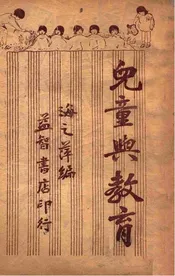 兒童與教育
海之萍編
益智書店印行